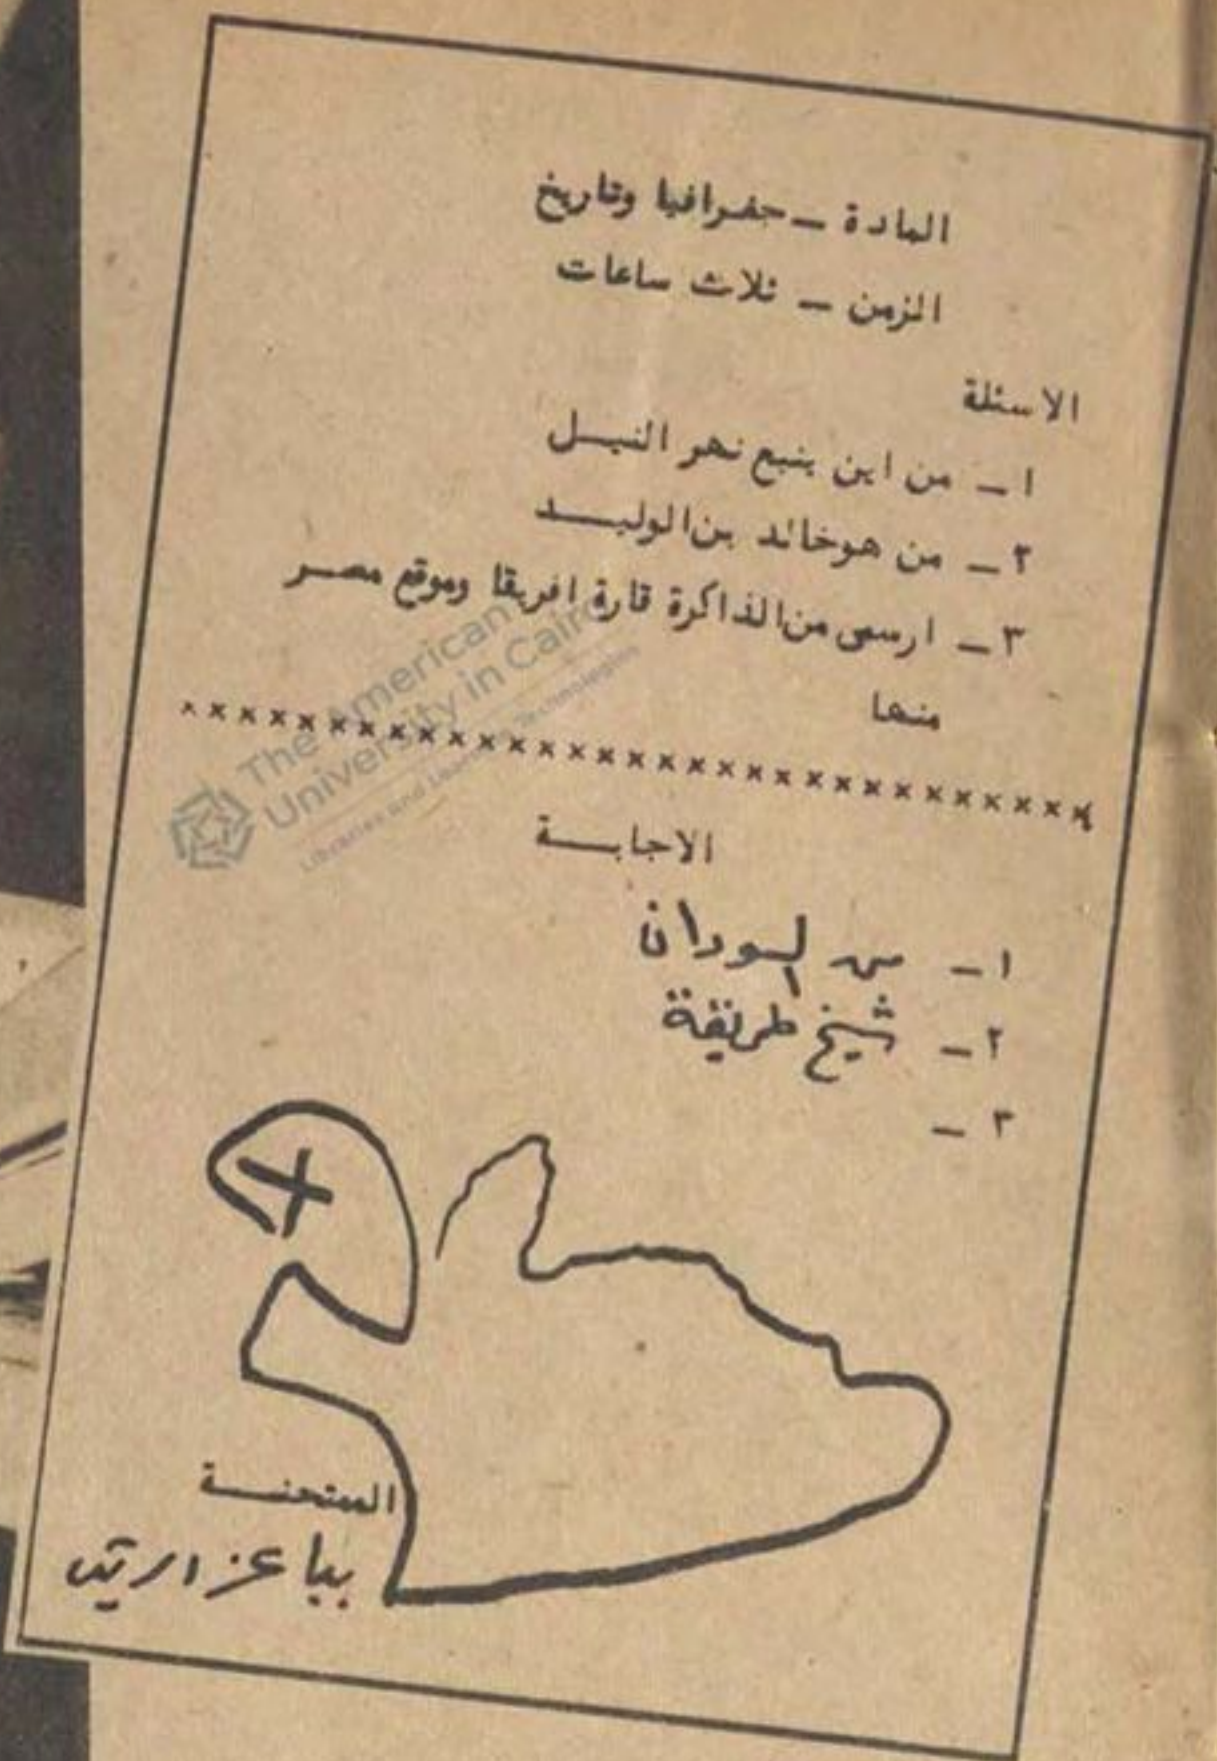 المادة ــ جغرافيا وتاريخ
الزمن ــ ثلاث ساعات
الاسئلة
١ ــ من اين ينبع نهر النيل
٢ ــ من هو خالد بن الوليد
٣ ــ ارسمى من الذاكرة قارة افريقا وموقع مصر
منها
×××××××××××××××××××××××××××××××
The American
University in Cairo
Libraries and Learning Technologies
الاجابة
١ ــ من السودان
٢ ــ شيخ طريقة
٣ ــ
الممتحنة
ببا عز